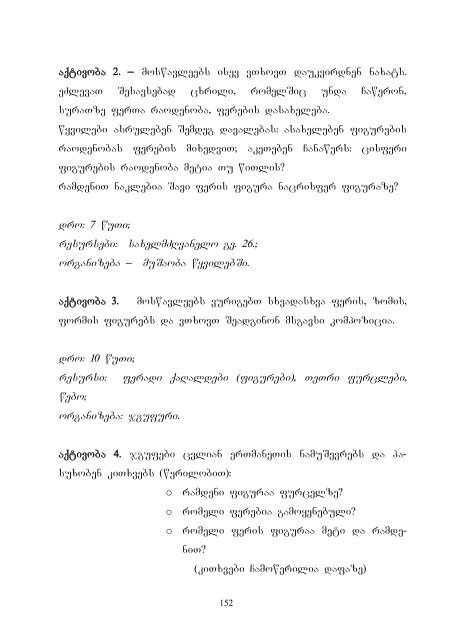 აქტივობა 2. – მოსწავლეებს ისევ ვთხოვთ დაუკვირდნენ ნახატს.
ეძლევათ შესავსებად ცხრილი, რომელშიც უნდა ჩაწერონ,
სურათზე ფერთა რაოდენობა, ფერების დასახელება.
წყვილები ასრულებენ შემდეგ დავალებას: ასახელებენ ფიგურების
რაოდენობას ფერების მიხედვით; აკეთებენ ჩანაწერს: ცისფერი
ფიგურების რაოდენობა მეტია თუ წითლის?
რამდენით ნაკლებია შავი ფერის ფიგურა ნაცრისფერ ფიგურაზე?
დრო: 7 წუთი;
რესურსები: სახელმძღვანელო გვ. 26.;
ორგანიზება – მუშაობა წყვილებში.
აქტივობა 3. მოსწავლეებს ვურიგებთ სხვადასხვა ფერის, ზომის,
ფორმის ფიგურებს და ვთხოვთ შეადგინონ მსგავსი კომპოზიცია.
დრო: 10 წუთი;
რესურსი: ფერადი ქაღალდები (ფიგურები), თეთრი ფურცლები,
წებო;
ორგანიზება: ჯგუფური.
აქტივობა 4. ჯგუფები ცვლიან ერთმანეთის ნამუშევრებს და პა-
სუხობენ კითხვებს (წერილობით):
o რამდენი ფიგურაა ფურცელზე?
o რომელი ფერებია გამოყენებული?
o რომელი ფერის ფიგურაა მეტი და რამდე-
ნით?
(კითხვები ჩამოწერილია დაფაზე)
152